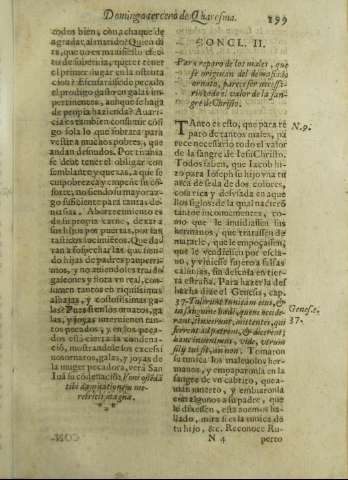 Domingo tercero de Quaresma.
199
todos bien, con achaque de
agradar al marido? Quien di-
rà, que no es manifiesto efec-
to de soberuia, querer tener
el primer lugar en la ostenta
cion? Escusaràse de pecado
el prodigo gasto en galas im-
pertinentes, aunque se haga
de propia hazienda? Auari-
cia es tambien consumir con-
sigo sola lo que sobrara para
vestir a muchos pobres, que
andan desnudos. Por tirania
se deue tener el obligar con
semblante y quexas, a que se
empobrezca y empeñe su cõ-
sorte, no siendo su mayoraz-
go suficiente para tantas de-
masias. Aborrecimiento es
de su propia carne, dexar a
sus hijos por puertas, por sus
tasticos lucimientos. Que da-
ran a sospechar las que sien-
do hijas de padres pauperri-
mos, y no atiendo les traido
galeones y flota en real, con-
sumen tantos en riquissimas
alhajas, y costosissimas ga-
las? Pues si en los ornatos, ga
las, y joyas interuienen tan-
tos pecados, y en los peca-
dos està cierta la condena-
ciõ, mostrandole los excessi
uos ornatos, galas, y joyas de
la muger pecadora, verà San
Iuã su cõdenaciõ.
tibi damnationem me-
retricis magnæ.
CONCL. II.
Para reparo de los males, que
se originan del demasiado
ornato, parece ser necessi-
rio todo el valor de la san-
gre de Christo.
TAnto es esto, que para re
paro de tantos males, pa
rece necessario todo el valor
de la sangre de Iesu Christo.
Todos saben, que Iacob hi-
zo para Ioseph su hijo vna tu
nica de seda de dos colores,
cosa rica y desusada en aque
llos siglos: de la qual nacierõ
tantos inconuenientes, co-
mo que le imbidiassen sus
hermanos, que tratassen de
matarle, que le empoçassen;
que le vendiessen por escla-
uo, y viniesse sujeto a falsas
calunias, sin dexarla en tier-
ra estraña. Para hazerla des
hecha dize el Genesis, cap.
37. Tulerunt tunicam eius, &
in sanguine hædi, quem occide-
rant, tinxerunt, mittentes, qui
ferrent ad patrem, & dicerent;
hanc inuenimus, vide, vtrum
filij tui sit, an non. Tomaron
su tunica los maleuolos her-
manos, y empaparonla en la
sangre de vn cabrito, que a-
uian muerto, y embiaronla
con algunos a su padre, que
le dixessen, esta auemos ha-
llado, mira si es la tunica de
tu hijo, &c. Reconoce Ru-
N 4
perto
N. 9.
Genes.
37.